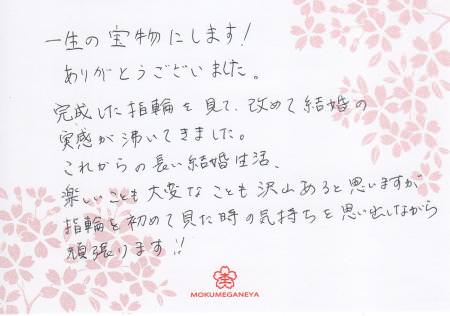 一生の宝物にします!
ありがとうございました。
完成した指輪を見て、改めて結婚の
実感が沸いてきました。
これからの長い結婚生活、
楽しいことも大変なことも沢山あると思いますが
指輪を初めて見た時の気持ちを思い出しながら
頑張ります!!
MOKUMEGANEYA